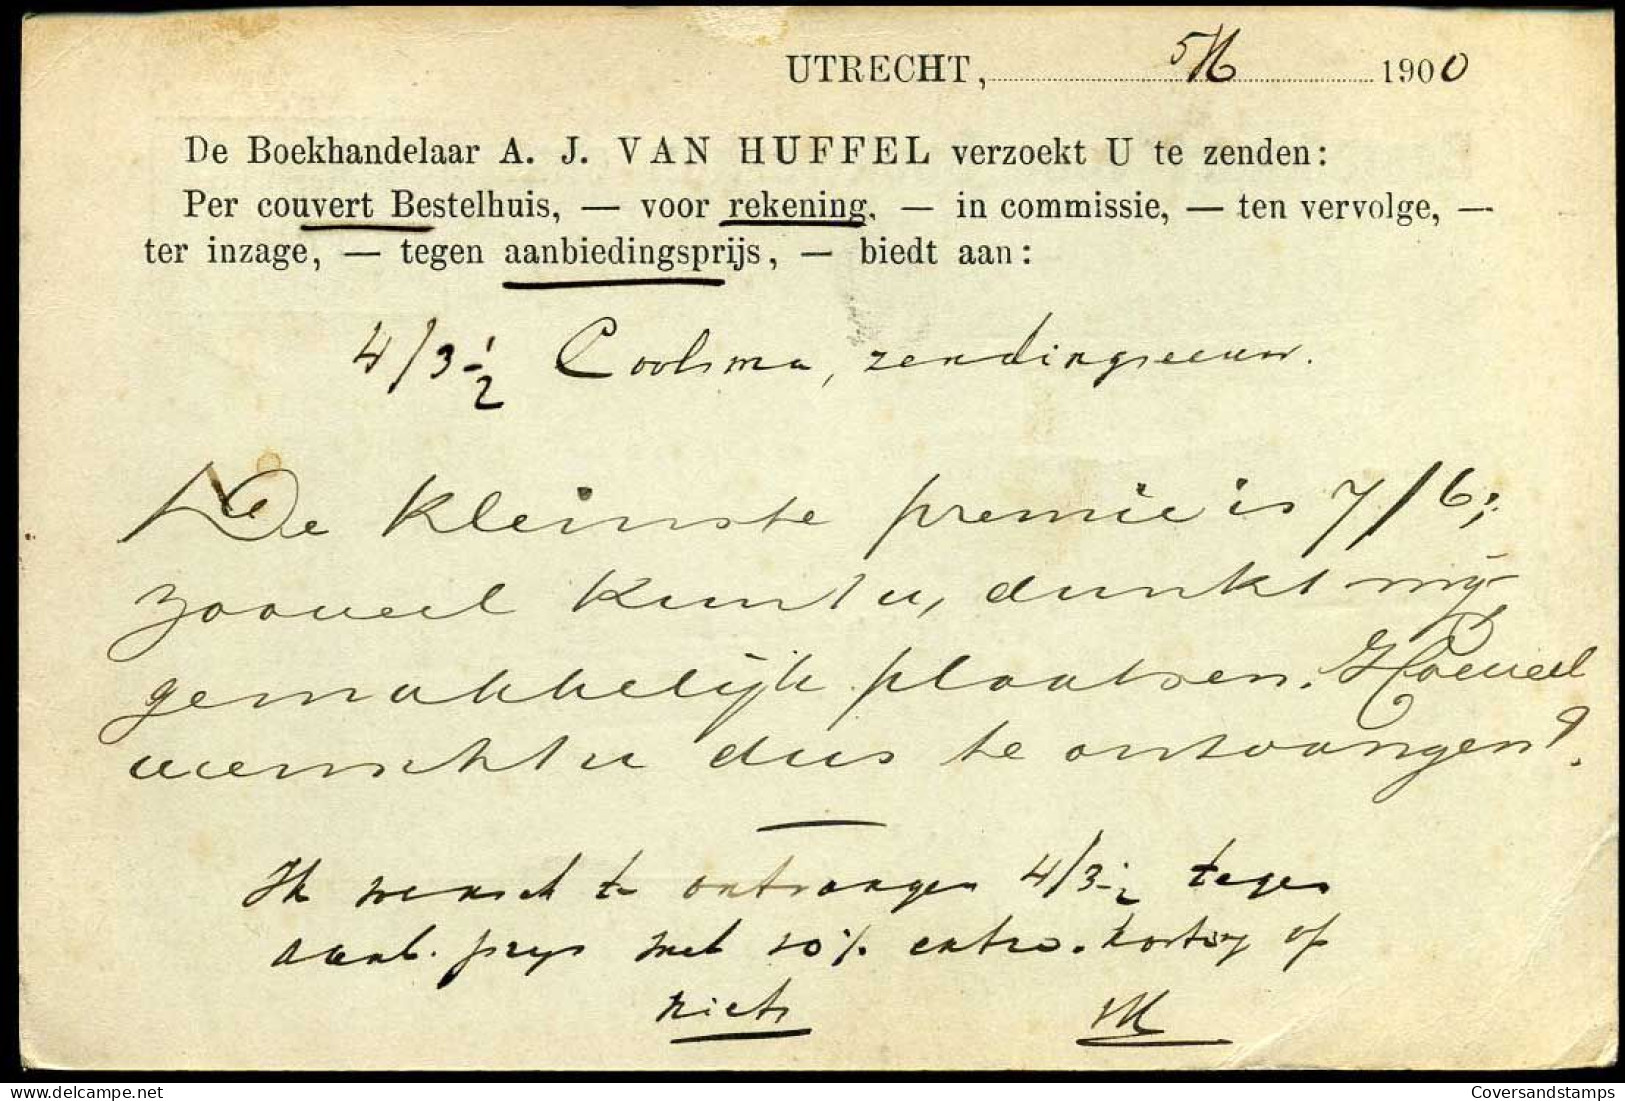 UTRECHT, 5/6 1900
De Boekhandelaar A. J. VAN HUFFEL verzoekt U te zenden:
Per couvert Bestelhuis, — voor rekening, — in commissie, — ten vervolge, —
ter inzage, — tegen aanbiedingsprijs, — biedt aan:
4/3 1/2 Coolsma, zendingseeuw.
De kleinste premie is 7/6;
zooveel kunt u, dunkt mij
gemakkelijk plaatsen. Hoeveel
wenscht u dus te ontvangen?
Ik wensch te ontvangen 4/3 1/2 tegen
aanb. prijs met 10% extra korting of
niets